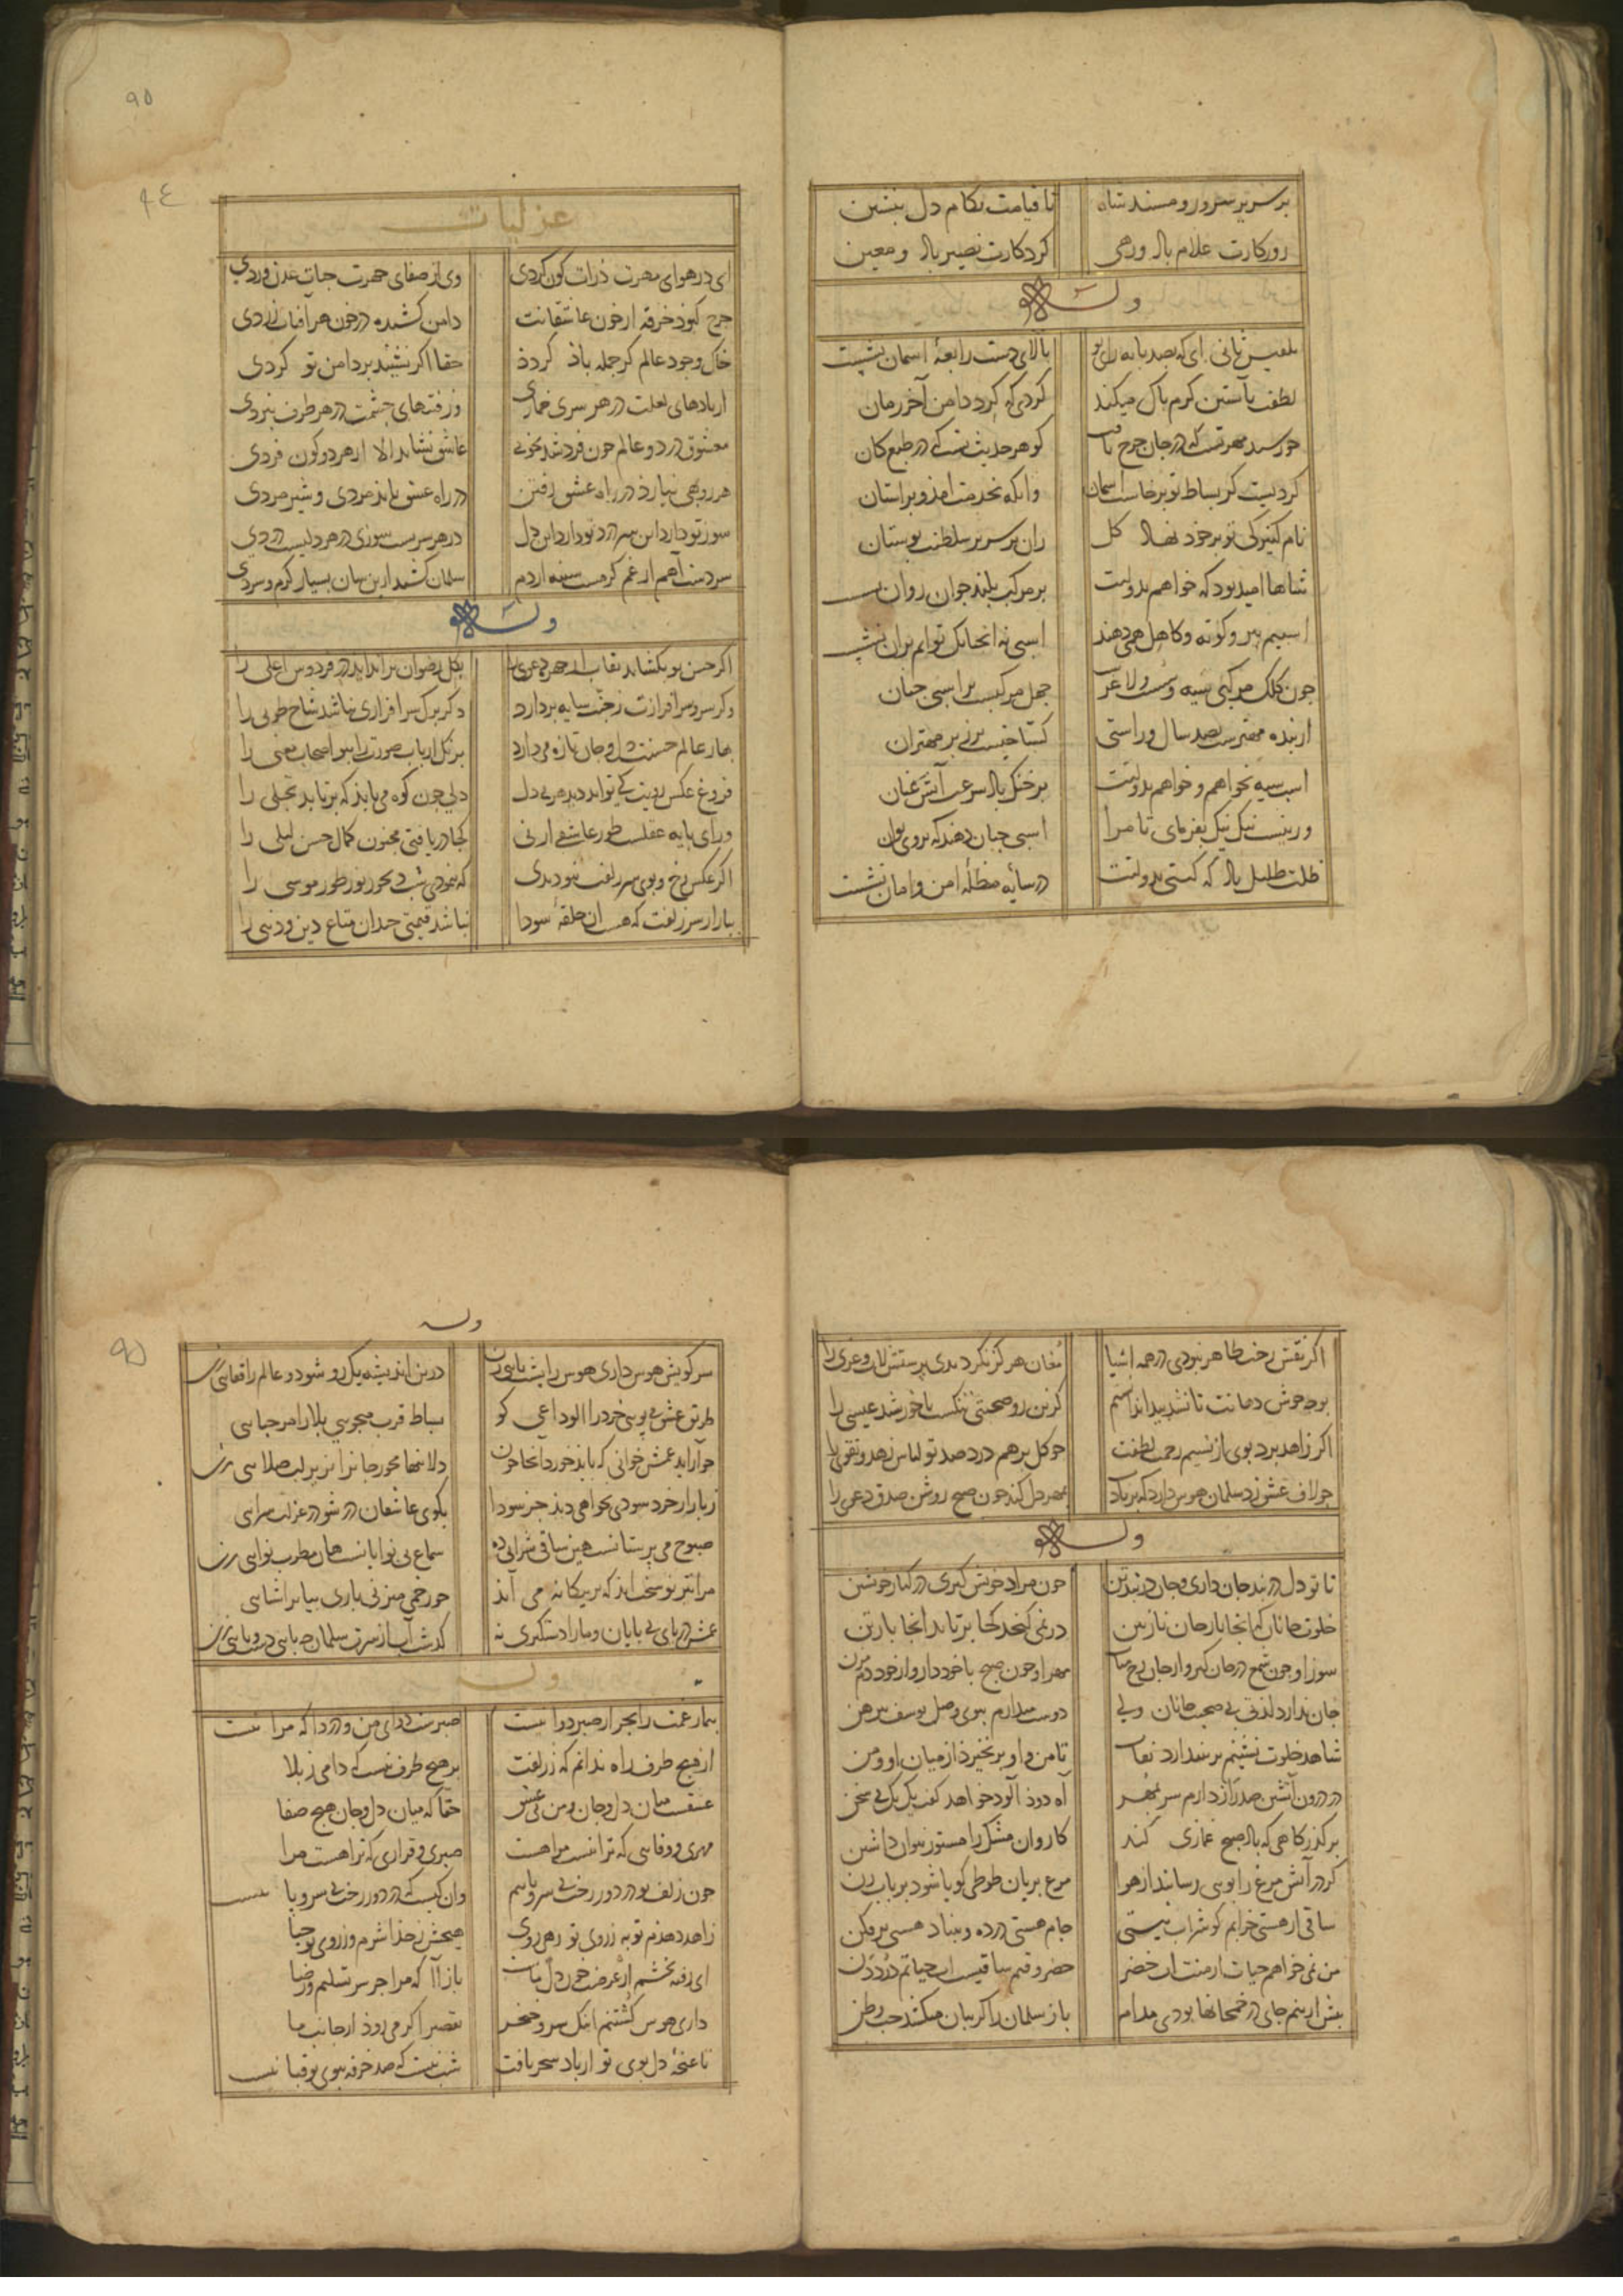 بر سریر سرور و مسند شاه تا قیامت بکام دل بنشین
روزکارت غلام باد و رهی کردکارت نصیر باد و معین
وله
بلقیس ثانی ای که بصد پایه رای تو بالای دست رابعهٔ اسمان نشست
لطفت بآستین کرم پاک میکند کردی که کرد دامن آخر زمان
خورشید مهرتست که در جان چرخ تافت کوهر حدیث تست که در طبع کان
کردیست کز بساط تو برخاست اسمان وانکه بخدمت امذ و بر استان
نام کنیزکی تو بر خود نهاد کل زان بر سریر سلطنت بوستان
شاها امید بود که خواهم بدولتت بر مرکب بلند جوان روان
اسبیم پیر و کوته و کاهل همی دهند اسبی نه انچنانک توانم بران نشست
چون کلک مرکبی سیه و سست و لاغر جهل مرکبست بر اسبی چنان
از بنده مهترست بصد سال و راستی کستاخیست برزبر مهتران
اسب سیه نخواهم و خواهم بدولتت بر خنک باد سرعت آتش عنان
ور نیست نیک نیک بفرمای تا مرا اسبی چنان دهند که بروی توان
ظلت ظلیل باد که کیتی بدولتت در سایهٔ مظلهٔ امن و امان نشست
غزلیات
ای در هوای مهرت ذرات کون کردی وی از صفای چهرت جنات عدن وردی
چرخ کبود خرقه از خون عاشقانت دامن کشیده در خون هر آفتاب زردی
خاک وجود عالم کر جمله باذ کردذ حقا اکر نشیند بر دامن تو کردی
از بادهای لعلت در هر سری خماری وز فتنهای چشمت در هر طرف نبردی
معشوق در دو عالم چون فرد شد بخوبی عاشق نشاید الا از هر دو کون فردی
هر روبهی نیارذ در راه عشق رفتن در راه عشق بایذ مردی و شیر مردی
سوز تو دارد این سر درد تو دارد این دل در هر سریست سوزی در هر دلیست دردی
سردست آهم از غم کرمست سینه از دم سلمان کشید ازین سان بسیار کرم و سردی
وله
اکر حسن تو بکشاید نقاب از چهره دعوی را بکل رضوان براندایذ در فردوس اعلی را
وکر سرو سرافرازت ز جنت سایه بردارد دکر برک سرافرازی نباشد شاخ طوبی را
بهار عالم حسنت دل و جان تازه می دارد برنک ارباب صورت را ببو اصحاب معنی را
فروغ عکس رویت کی تواند دید هر بی دل دلی چون کوه می بایذ که برتابد تجلی را
ورای پایه عقلست طور عاشقی ار نی کجا دریافتی مجنون کمال حسن لیلی را
اکر عکس رخ و بوی سر زلفت نبودیدی که بنمودی شب دیجور نور طور موسی را
ببازار سر زلفت که هست ان حلقهٔ سودا نباشد قیمتی چندان متاع دین و دنیی را
اکر نقش رخت ظاهر نبودی در همه اشیا مغان هرکز نکردندی پرستش لات و عزی را
اکر زاهد برد بوی از نسیم رحمت لطفت چو کل برهم درد صد تو لباس زهد و تقوی را
چو لاف عشق زد سلمان هوس دارد که بر یاد بمهر دل کند چون صبح روشن صدق دعوی را
وله
تا تو دل در بند جان داری و جان در بند تن چون مراد خویش کیری در کنار خویشتن
خلوت جانان که انجا بار جان نازنین در نمی کنجد کجا برتابد انجا بار تن
سوز او چون شمع در جان کیر و از جان رخ متاب مهر او چون صبح با خود دار و از خود دم مزن
جان ندارد لذتی بی صحبت جانان ولی دوست میدارم ببوی وصل یوسف پیرهن
شاهد خلوت نشینم بر نیندازد نقاب تا من و او برنخیزذ از میان او و من
در درون آتشین صد راز دارم سر بمهر آه دوذ آلود خواهد کفت یک یک بی سخن
بر کذرکاهی که باد صبح غمازی کند کاروان مشک را مستور نتوان داشتن
کر در آتش مرغ را بویی رسانند از هوا مرغ بریان طوطی کویا شود بر بابزن
ساقی از هستی خرابم کو شراب نیستی جام هستی در ده و بنیاد هستی برفکن
من نمی خواهم حیات از منت اب خضر خضر وقتم ساقیست اب حیاتم درد دن
بیش ازینم جای در خمخانها بودی مدام باز سلمان را کریبان میکشد حب وطن
وله
سر کویش هوس داری هوس را پشت پایی زن درین اندیشه یک رو شو دو عالم را قفایی زن
طریق عشق می پویی خرد را الوداعی کو بساط قرب میجویی بلا را مرحبایی
چو آراید غمش خوانی که بایذ خورد انجا خون دلا تنها مخور جانرا نیز بر لب صلایی زن
ز بازار خرد سودی نخواهی دید جز سودا بکوی عاشقان در شو در عزلت سرایی
صبوح می پرستانست هین ساقی شرابی ده سماع بی نوایانست هان مطرب نوایی زن
مرا تیر تو سخت ایذ که بر بیکانه می آید چو زخمی میزنی باری بیا بر اشنایی
غمش دریای بی پایان و ما را دستکیری نه کذشت آب از سرت سلمان چه پایی دست و پایی زن
وله
بیمار غمت را بجز از صبر دوا نیست صبرست دوای من و دردا که مرا نیست
از هیچ طرف راه ندانم که ز زلفت بر هیچ طرف نیست که دامی ز بلا
عشقست میان دل و جان و من بی عشق حقا که میان دل و جان هیچ صفا
مهری و وفایی که ترا نیست مرا هست صبری و قراری که ترا هست مرا
چون زلف تو در دور رخت بی سر و پایم وان کیست که در دور رخت بی سر و پا نیست
زاهد دهذم توبه ز روی تو زهی روی هیچش ز خذا شرم و ز روی تو حیا
ای رفته بخشم از غرضت خون دل ماست بازآ که مرا جز سر تسلیم و رضا
داری هوس کشتنم اینک سر و خنجر تقصیر اکر می روذ از جانب ما
تا غنچهٔ دل بوی تو از باد سحر یافت شب نیست که صد خرقه ببوی تو قبا نیست